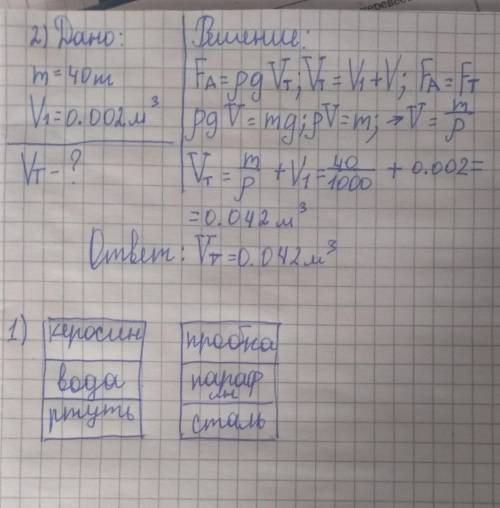 2) Дано:
m = 40 т
V₁ = 0.002 м³
Vт - ?
Решение:
FА = ρg Vт; Vт = V₁ + V; FА = Fт
ρg V = mg; ρV = m; → V = m/ρ
Vт = m/ρ + V₁ = 40/1000 + 0.002 =
= 0.042 м³
Ответ: Vт = 0.042 м³
1)
керосин
вода
ртуть
пробка
параф
ин
сталь